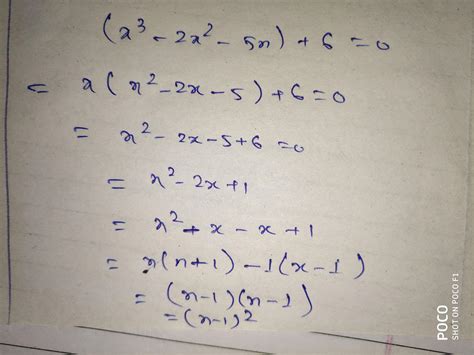 (x³ - 2x² - 5x) + 6 = 0
= x(x² - 2x - 5) + 6 = 0
= x² - 2x - 5 + 6 = 0
= x² - 2x + 1
= x² + x - x + 1
= x(x + 1) - 1(x - 1)
= (x - 1)(x - 1)
= (x - 1)²
POCO
SHOT ON POCO F1